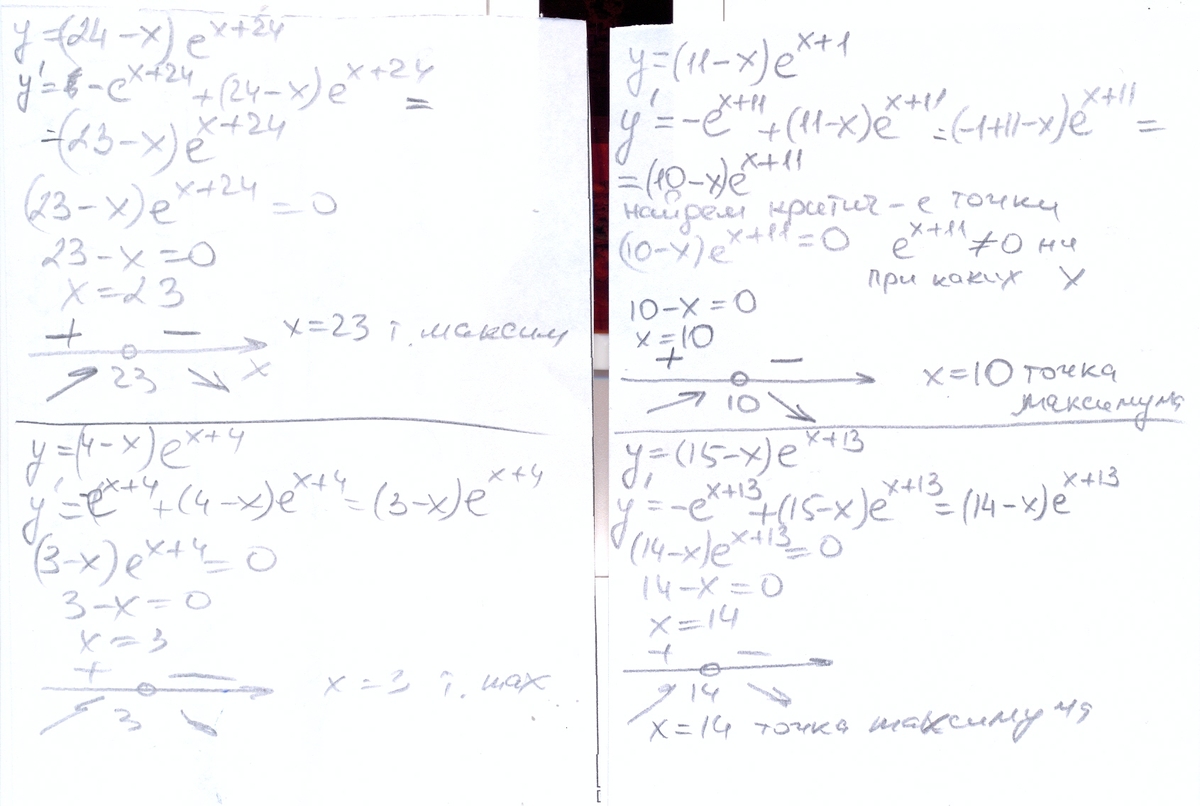 y=(24-x)e^{x+24}
y'=-e^{x+24}+(24-x)e^{x+24}=
=(23-x)e^{x+24}
(23-x)e^{x+24}=0
23-x=0
x=23
+ −
x=23 т. максим
23 x
y=(4-x)e^{x+4}
y'=-e^{x+4}+(4-x)e^{x+4}=(3-x)e^{x+4}
(3-x)e^{x+4}=0
3-x=0
x=3
+ −
3
x=3 т. max
y=(11-x)e^{x+1}
y'=-e^{x+11}+(11-x)e^{x+11}=(-1+11-x)e^{x+11}=
=(10-x)e^{x+11}
найдем критич-е точки
(10-x)e^{x+11}=0 e^{x+11}≠0 ни
при каких x
10-x=0
x=10
+ −
10
x=10 точка
максимума
y=(15-x)e^{x+13}
y'=-e^{x+13}+(15-x)e^{x+13}=(14-x)e^{x+13}
(14-x)e^{x+13}=0
14-x=0
x=14
+ −
14
x=14 точка максимума